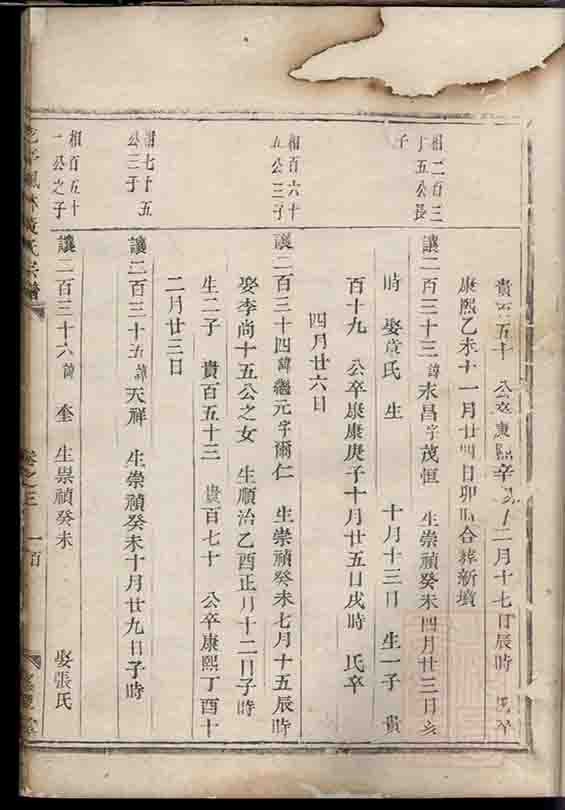 貴百五十　公卒康熙辛　十二月十七日辰時　氏卒
康熙乙未十一月廿四日卯時合葬新墳
相二百三
十五公長
子
讓二百三十三諱永昌字茂恒　生崇禎癸未四月廿三日亥
時　娶童氏　生　十月十三日　生一子　貴
百十九　公卒康康庚子十月廿五日戌時　氏卒
四月廿六日
相百六十
五公三子
讓二百三十四諱繼元字爾仁　生崇禎癸未七月十五辰時
娶李尚十五公之女　生順治乙酉正月十二日子時
生二子　貴百五十三　貴百七十　公卒康熙丁酉十
二月廿三日
相七十五
公三子
讓二百三十五諱天祥　生崇禎癸未十月廿九日子時
相百五十
一公之子
讓二百三十六諱　奎　生崇禎癸未　娶張氏
氏宗譜
卷之三　一百
堂